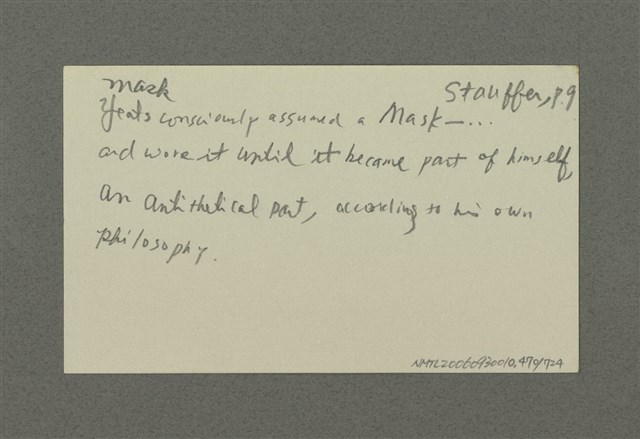 Mask
Stauffer, p.9
Yeats consciously assumed a Mask—...
and wore it until it became part of himself,
an antithetical part, according to his own
philosophy.
NMTL20060930010.470/724